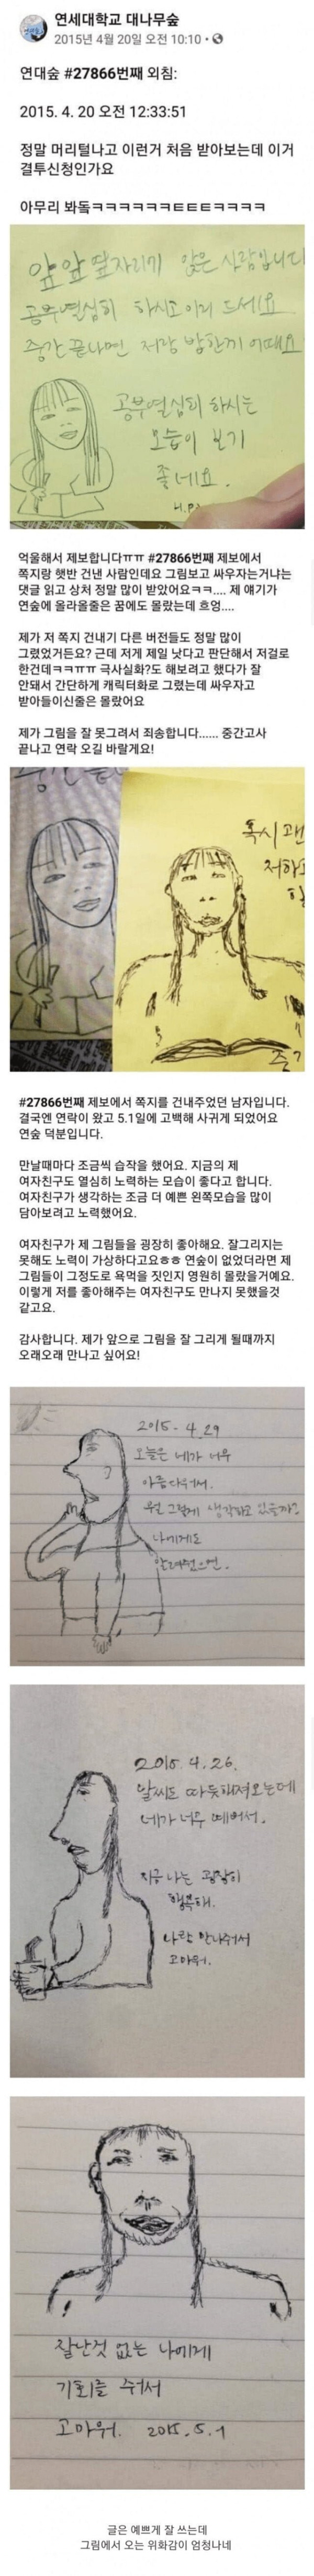 연세대학교 대나무숲
2015년 4월 20일 오전 10:10 ·
연대숲 #27866번째 외침:
2015. 4. 20 오전 12:33:51
정말 머리털나고 이런거 처음 받아보는데 이거
결투신청인가요
아무리 봐돜ㅋㅋㅋㅋㅋㅋㅌㅌㅌㅋㅋㅋㅋ
앞앞 옆자리에 앉은 사람입니다
공부열심히 하시고 이거 드세요
중간 끝나면 저랑 밥한끼 어때요
공부열심히 하시는
모습이 보기
좋네요.
억울해서 제보합니다ㅠㅠ #27866번째 제보에서
쪽지랑 햇반 건낸 사람인데요 그림보고 싸우자는거냐는
댓글 읽고 상처 정말 많이 받았어요ㅋㅋ.... 제 얘기가
연숲에 올라올줄은 꿈에도 몰랐는데 흐엉....
제가 저 쪽지 건내기 다른 버전들도 정말 많이
그렸었거든요? 근데 저게 제일 낫다고 판단해서 저걸로
한건데ㅋㅋㅠㅠ 극사실화?도 해보려고 했다가 잘
안돼서 간단하게 캐릭터화로 그렸는데 싸우자고
받아들이신줄은 몰랐어요
제가 그림을 잘 못그려서 죄송합니다...... 중간고사
끝나고 연락 오길 바랄게요!
혹시 괜
저하
#27866번째 제보에서 쪽지를 건내주었던 남자입니다.
결국엔 연락이 왔고 5.1일에 고백해 사귀게 되었어요
연숲 덕분입니다.
만날때마다 조금씩 습작을 했어요. 지금의 제
여자친구도 열심히 노력하는 모습이 좋다고 합니다.
여자친구가 생각하는 조금 더 예쁜 왼쪽모습을 많이
담아보려고 노력했어요.
여자친구가 제 그림들을 굉장히 좋아해요. 잘그리지는
못해도 노력이 가상하다고요ㅎㅎ 연숲이 없었더라면 제
그림들이 그정도로 욕먹을 짓인지 영원히 몰랐을거예요.
이렇게 저를 좋아해주는 여자친구도 만나지 못했을것
같고요.
감사합니다. 제가 앞으로 그림을 잘 그리게 될때까지
오래오래 만나고 싶어요!
2015. 4. 29
오늘은 네가 너무
아름다워서.
뭘 그렇게 생각하고 있을까?
나에게도
알려줬으면.
2015. 4. 26.
날씨도 따듯해져오는데
네가 너무 예뻐서.
지금 나는 굉장히
행복해.
나랑 만나줘서
고마워.
잘난것 없는 나에게
기회를 줘서
고마워. 2015. 5. 1
글은 예쁘게 잘 쓰는데
그림에서 오는 위화감이 엄청나네